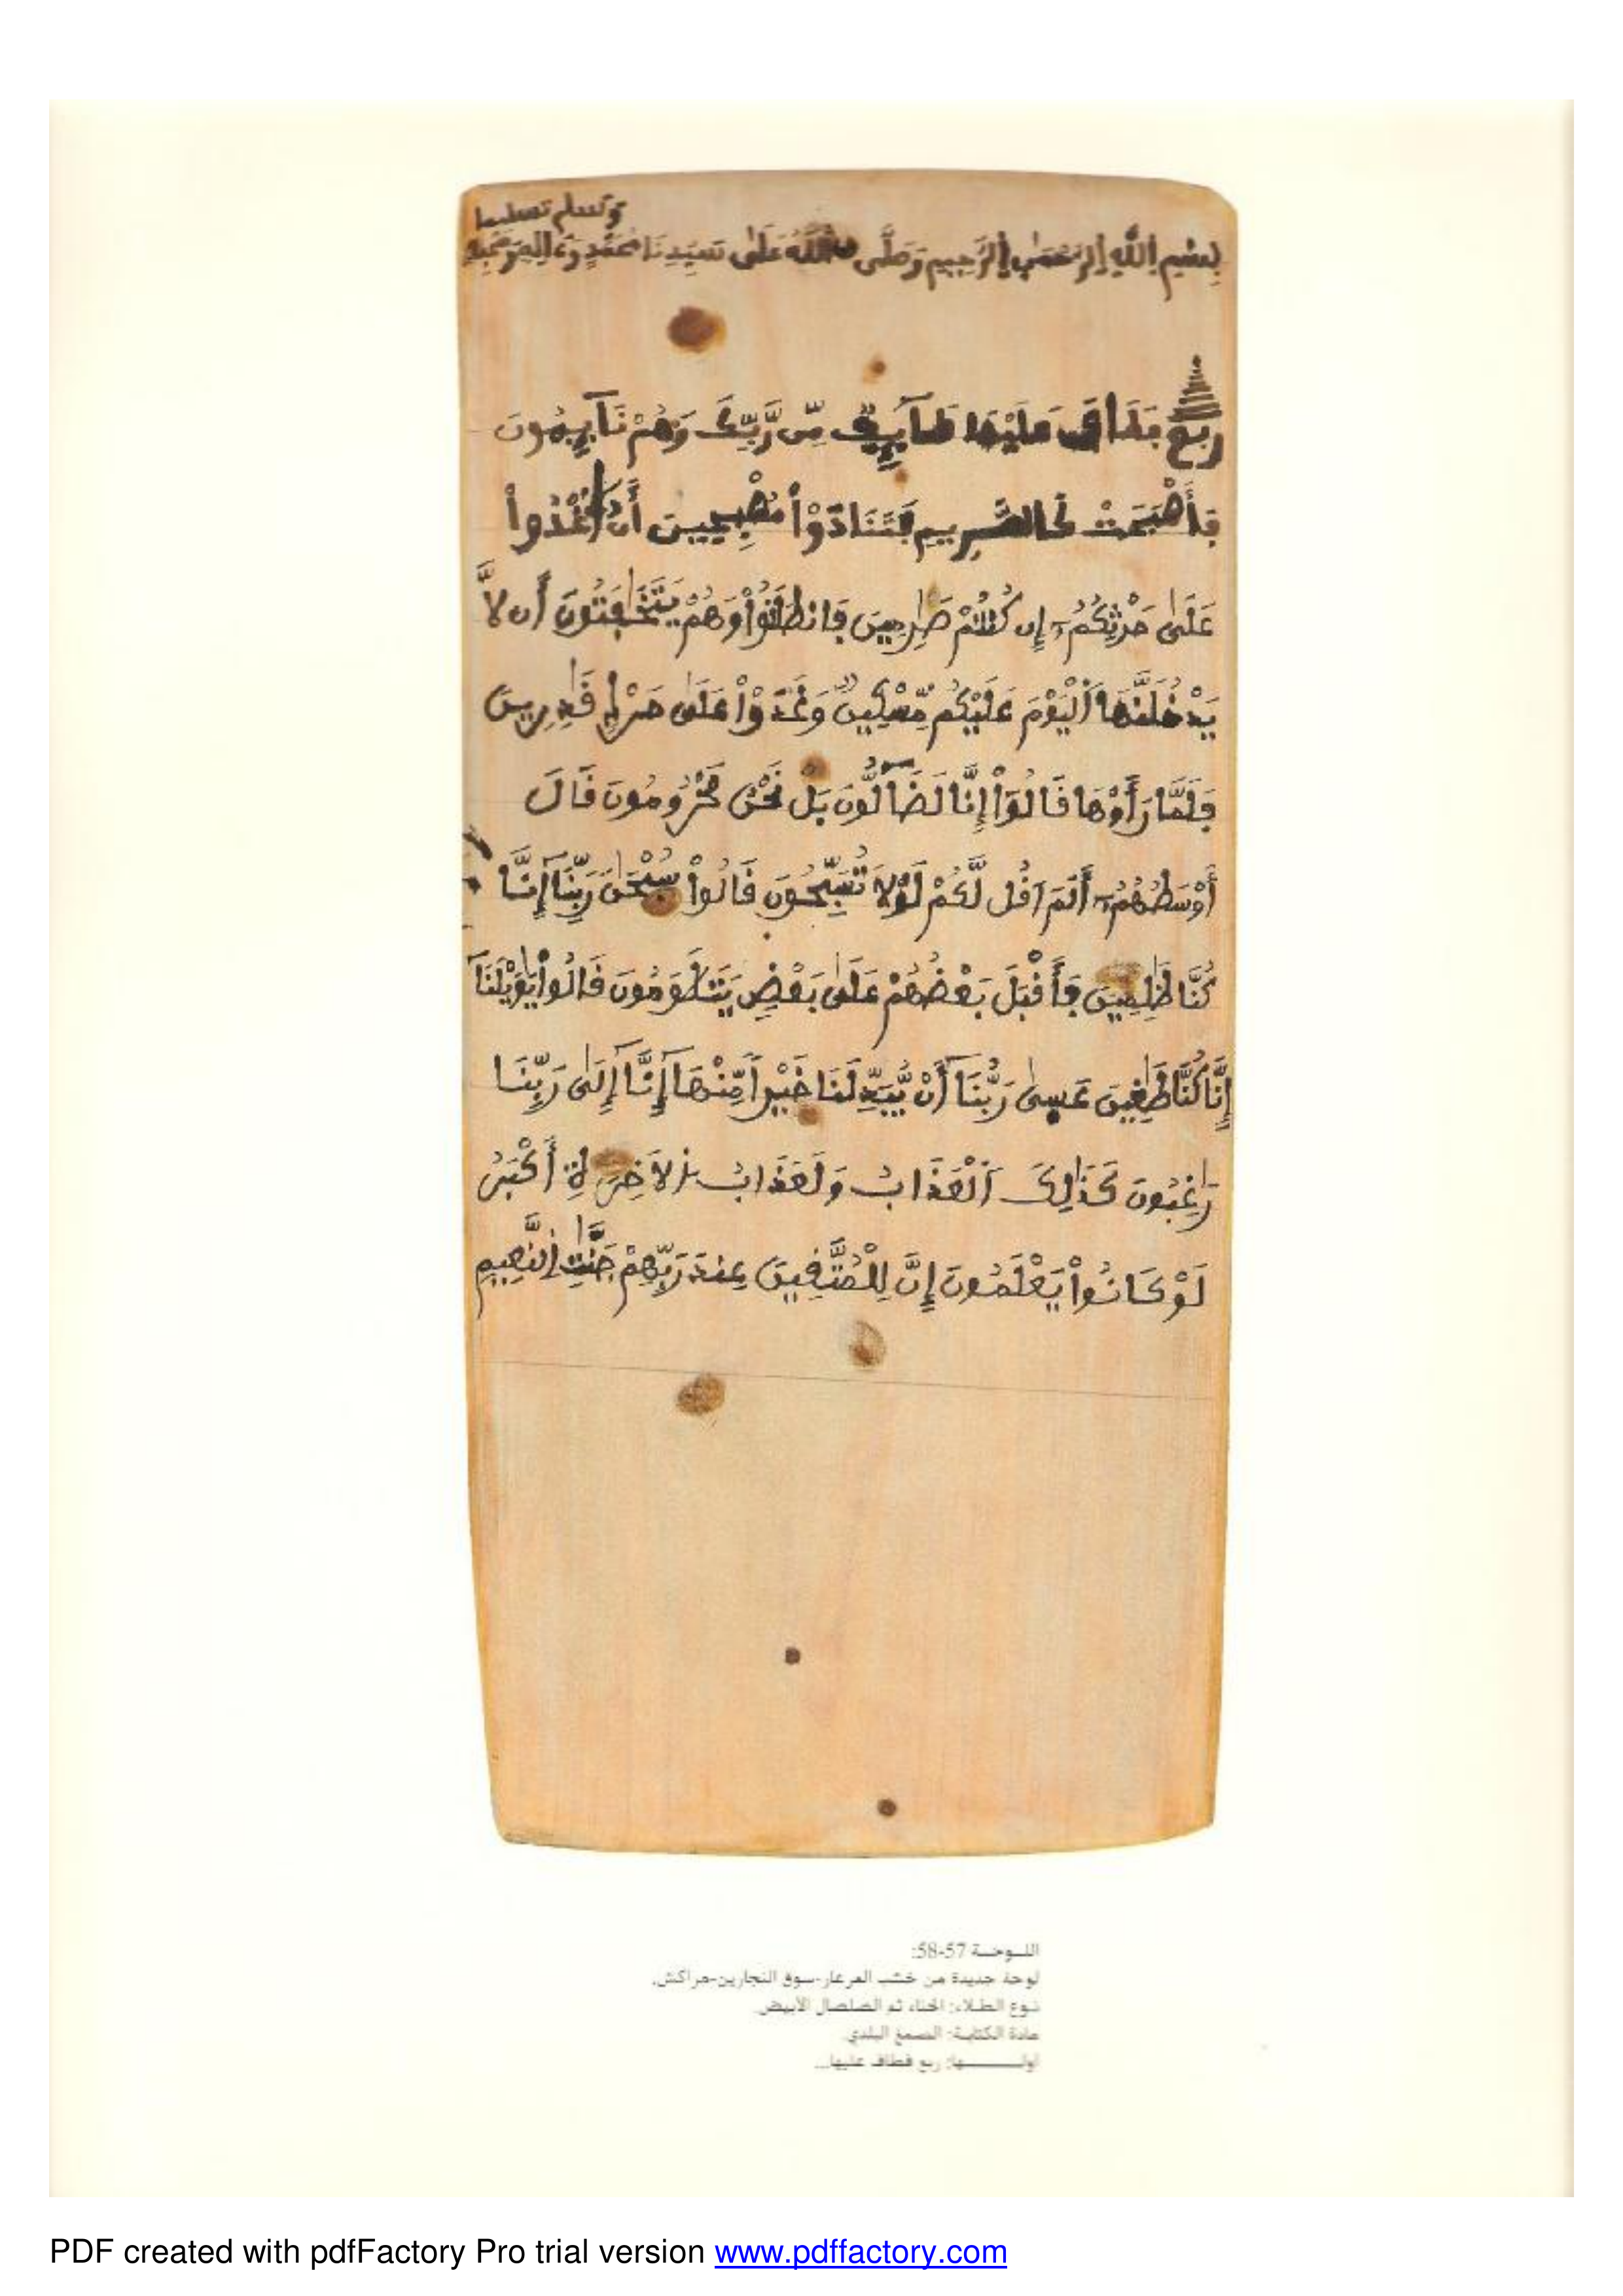 وسلم تسليما
بِسْمِ اِللَّهِ اِلرَّحْمَٰنِ اِلرَّحِيمِ وَصَلَّى اللَّهُ عَلَىٰ سَيِّدِنَا مُحَمَّدٍ وَءَالِهِ وَصَحْبِهِ
رُبع فَطَافَ عَلَيْهَا طَآئِفٌ مِّن رَّبِّكَ وَهُمْ نَآئِمُونَ
فَأَصْبَحَتْ كَالصَّرِيمِ فَتَنَادَوْاْ مُصْبِحِينَ أَنُ اغْدُواْ
عَلَىٰ حَرْثِكُمُۥٓ إِن كُنتُمْ صَٰرِمِينَ فَانطَلَقُواْ وَهُمْ يَتَخَٰفَتُونَ أَن لَّا
يَدْخُلَنَّهَا اَلْيَوْمَ عَلَيْكُم مِّسْكِينٌ وَغَدَوْاْ عَلَىٰ حَرْدٍ قَٰدِرِينَ
فَلَمَّا رَأَوْهَا قَالُوٓاْ إِنَّا لَضَآلُّونَ بَلْ نَحْنُ مَحْرُومُونَ قَالَ
أَوْسَطُهُمُۥٓ أَلَمَ اَقُل لَّكُمْ لَوْلَا تُسَبِّحُونَ قَالُواْ سُبْحَٰنَ رَبِّنَآ إِنَّا
كُنَّا ظَٰلِمِينَ فَأَقْبَلَ بَعْضُهُمْ عَلَىٰ بَعْضٍ يَتَلَٰوَمُونَ قَالُواْ يَٰوَيْلَنَآ
إِنَّا كُنَّا طَٰغِينَ عَسىٰ رَبُّنَآ أَنْ يُّبَدِّلَنَا خَيْراً مِّنْهَآ إِنَّآ إِلَىٰ رَبِّنَا
رَٰغِبُونَ كَذَٰلِكَ اَلْعَذَابُ وَلَعَذَابُ اُلَاخِرَةِ أَكْبَرُ
لَوْ كَانُواْ يَعْلَمُونَ إِنَّ لِلْمُتَّقِينَ عِندَ رَبِّهِمْ جَنَّٰتِ اِلنَّعِيمِ
اللــوحــة 57-58:
لوحة جديدة من خشب العرعار-سوق النجارين-مراكش.
نـوع الطـلاء: الحناء ثم الصلصال الأبيض.
مادة الكتابـة: الصمغ البلدي.
أولــــــها: ربع فطاف عليها...
PDF created with pdfFactory Pro trial version www.pdffactory.com